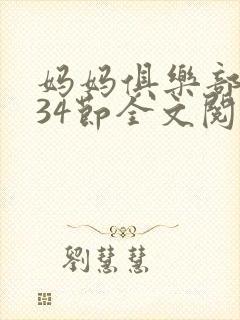 妈妈俱樂部
34節全文閱
劉慧慧